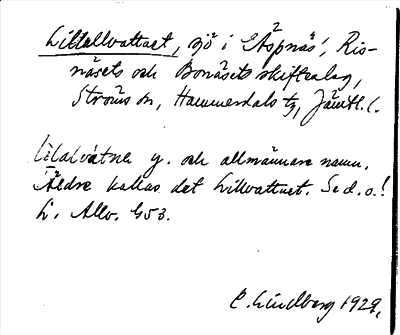 Lillallvattnet, sjö i Äspnäs, Ris-
näsets och Bonäsets skifteslag,
Ströms sn, Hammerdals tg, Jämtl. l.
y. och allmännare namn.
Äldre kallas det Lillvattnet. Se d. o.!
L. Allv. 653.
E. Lindberg 1929.